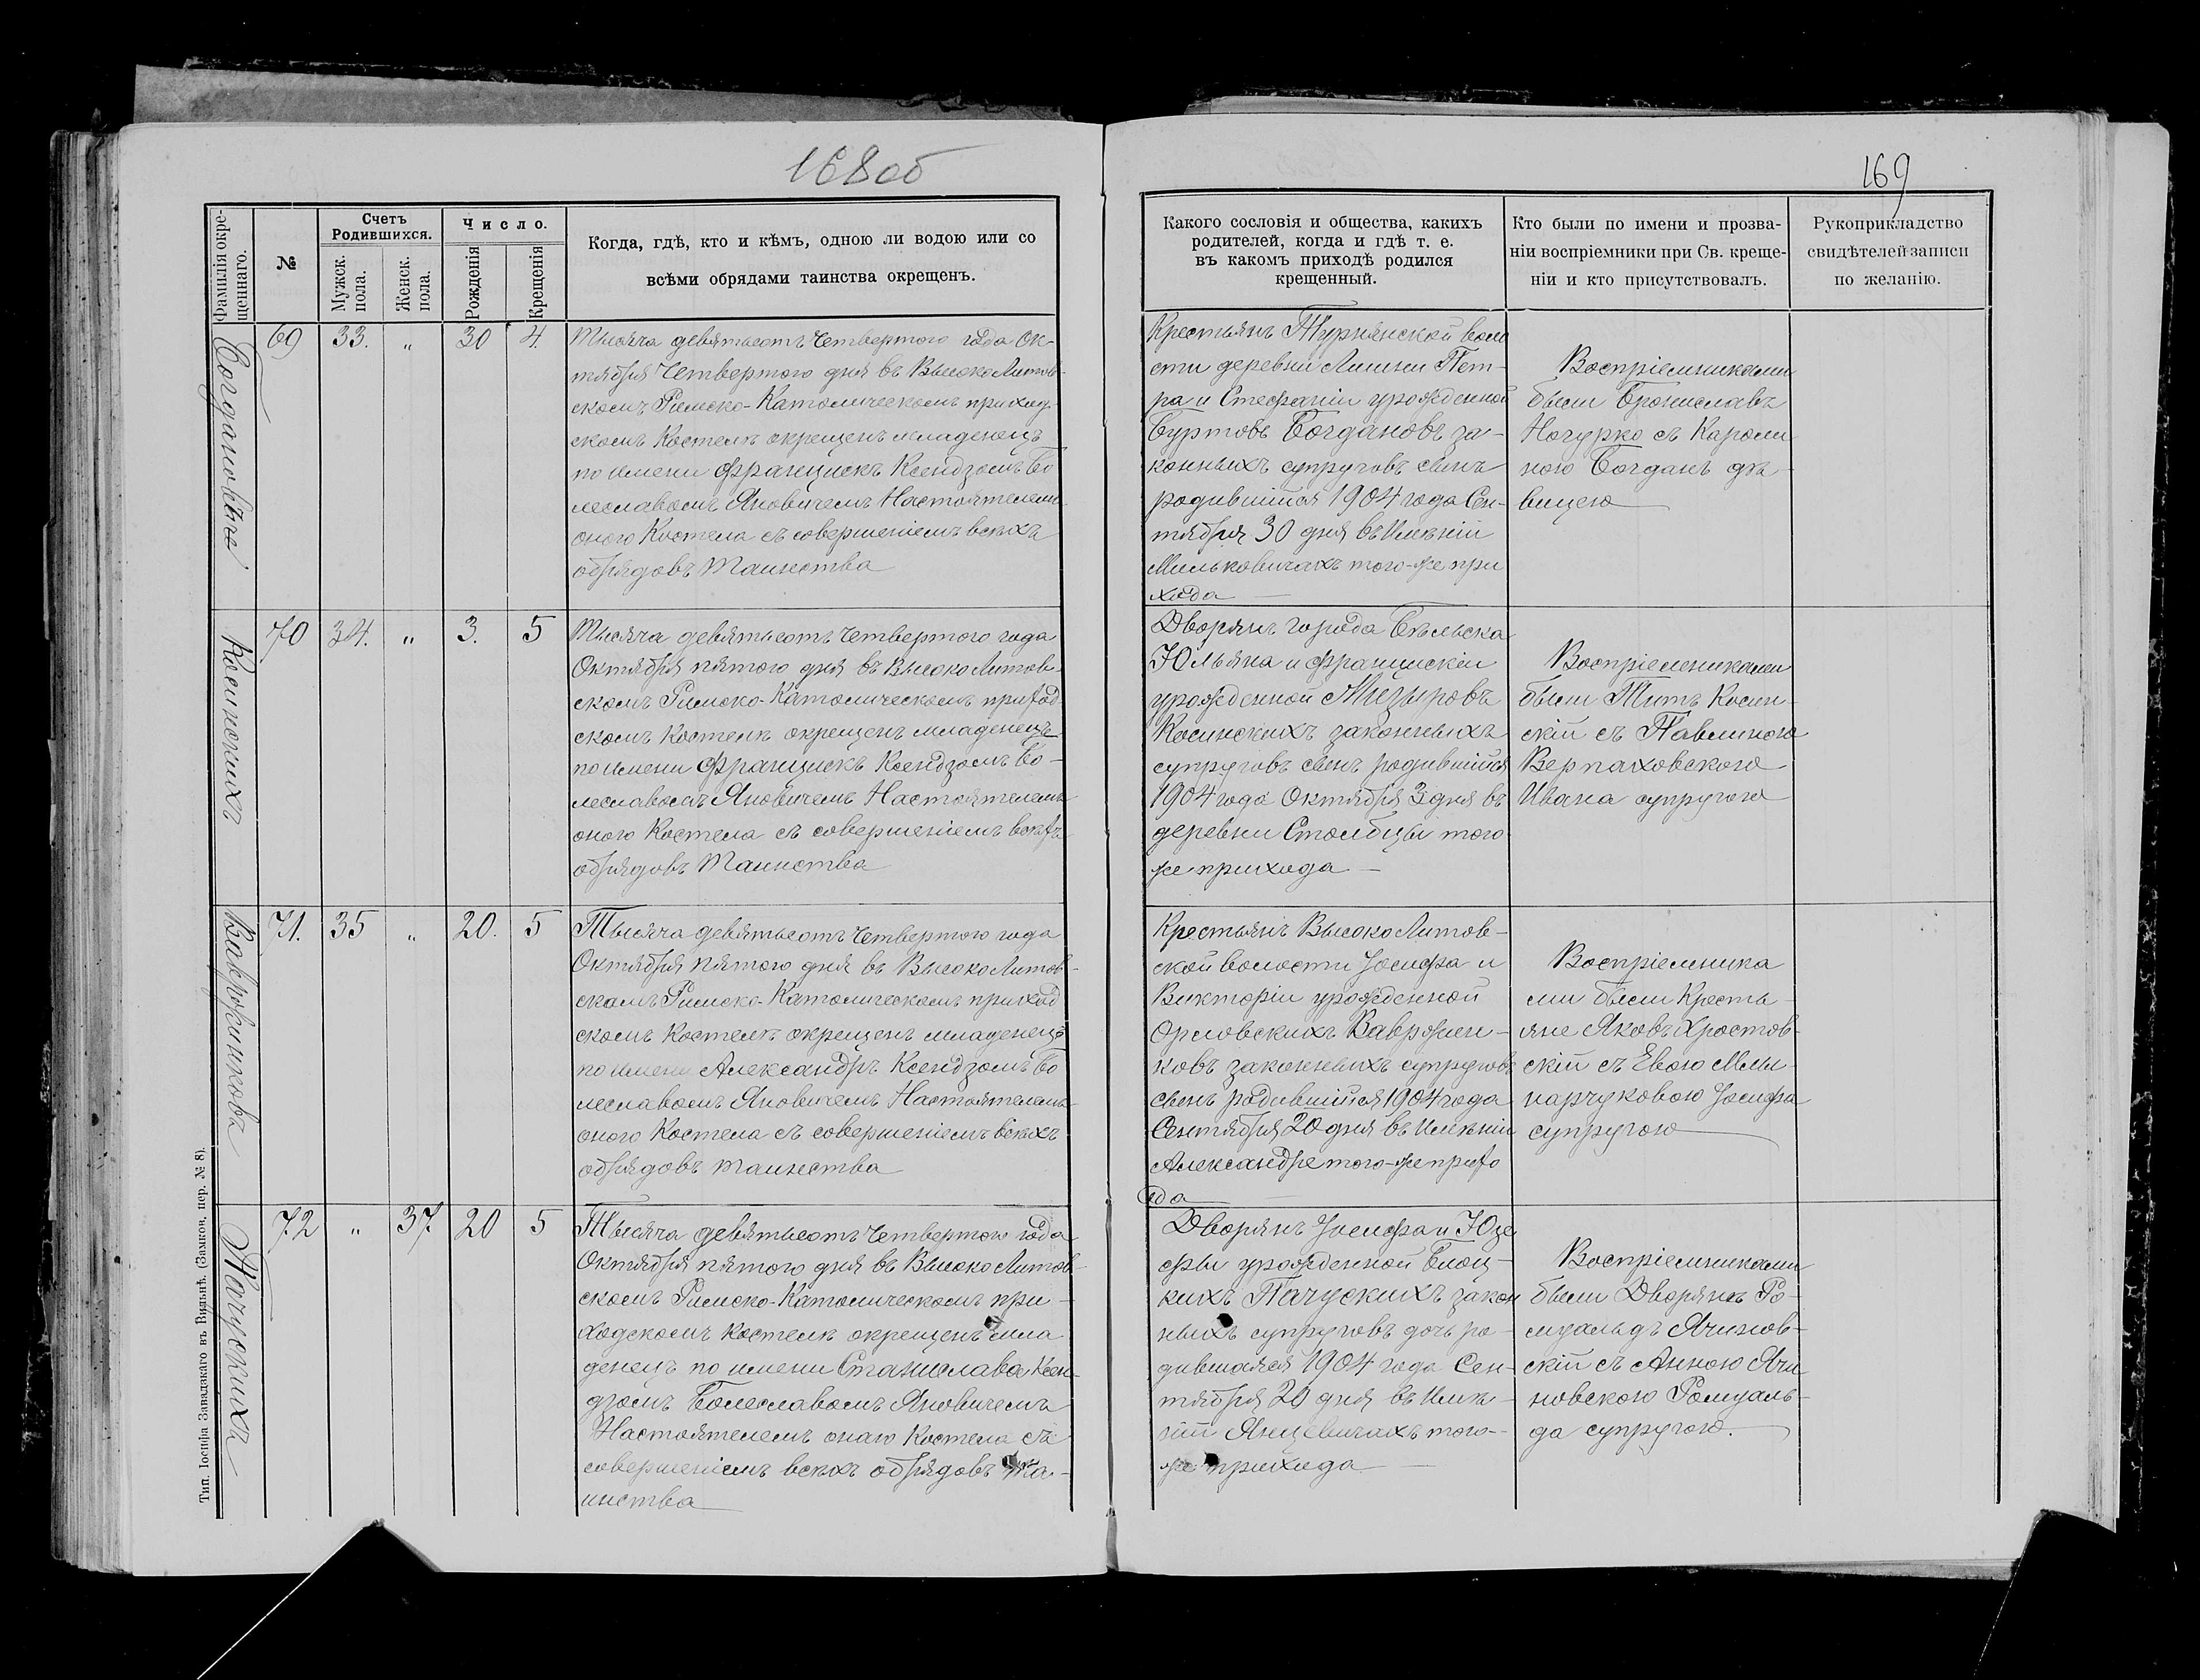 168об
169
Фамилія окре-
щеннаго.
№
Счетъ
Родившихся.
Мужск.
пола.
Женск.
пола.
Число.
Рожденія
Крещенія
Когда, гдѣ, кто и кѣмъ, одною ли водою или со
всѣми обрядами таинства окрещенъ.
Какого сословія и общества, какихъ
родителей, когда и гдѣ т. е.
въ какомъ приходѣ родился
крещенный.
Кто были по имени и прозва-
ніи воспріемники при Св. креще-
ніи и кто присутствовалъ.
Рукоприкладство
свидѣтелей записи
по желанію.
69 33. „ 30 4.
Тысяча девятьсотъ Четвертого года Ок-
тября Четвертого дня въ ВысокоЛитов-
скомъ Римско-Католическомъ приход-
скомъ Костелѣ окрещенъ младенецъ
по имени Францискъ Ксендзомъ Бо
леславомъ Яновичемъ Настоятелемъ
оного Костела съ совершеніемъ всѣхъ
обрядовъ Таинства
Крестьянъ Турнянской воло
сти деревни Лишни Пет-
ра и Стефаніи урожденной
Буртовъ Богдановъ за-
конныхъ супруговъ сынъ
родившійся 1904 года Сен-
тября 30 дня въ Имѣніи
Мильковичахъ того-же при
хода
Воспріемниками
были Брониславъ
с Кароли
ною Богданъ дѣ-
вицею
Косинскихъ
70 34. „ 3. 5
Тысяча девятьсотъ Четвертого года
Октября пятого дня въ Высоко Литов-
скомъ Римско-Католическомъ приход
скомъ Костелѣ окрещенъ младенецъ
по имени Францискъ Ксендзомъ Бо-
леславомъ Яновичемъ Настоятелемъ
оного Костела съ совершеніемъ всѣхъ
обрядовъ Таинства
Дворянъ города Бѣльска
Юльяна и Францискіи
урожденной Мизыровъ
Косинскихъ законныхъ
супруговъ сынъ родившійся
1904 года Октября 3 дня въ
деревни Столбцы того
же прихода
Воспріемниками
были Титъ Косин-
скій съ Павлиною
Верпаховскою
Ивана супругою
Вавронюковъ
71. 35 „ 20. 5
Тысяча девятьсотъ Четвертого года
Октября пятого дня въ Высоко Литов-
скомъ Римско-Католическомъ приход
скомъ Костелѣ окрещенъ младенецъ
по имени Александръ Ксендзомъ Бо
леславомъ Яновичемъ Настоятелемъ
оного Костела съ совершеніемъ всѣхъ
обрядовъ таинства
Крестьянъ Высоко Литов-
ской волости Іосифа и
Викторіи урожденной
Орловскихъ
ковъ законныхъ супруговъ
сынъ родившійся 1904 года
Сентября 20 дня въ Имѣніи
Александре того-же прихо
да
Воспріемника
ми были Кресть-
яне Яковъ Хростов-
скій съ Евою Мли-
нарчуковою Іосифа
супругою
72 „ 37. 20 5
Тысяча девятьсотъ Четвертого года
Октября пятого дня въ Высоко Литов-
скомъ Римско-Католическомъ при-
ходскомъ Костелѣ окрещенъ мла
денецъ по имени Станислава Ксен-
дзомъ Болеславомъ Яновичемъ
Настоятелемъ онаго Костела съ
совершеніемъ всѣхъ обрядовъ Та-
инства
Дворянъ Іосифа и Юзе
фы урожденной Блоц-
кихъ Пачускихъ закон
ныхъ супруговъ дочь ро-
дившаяся 1904 года Сен-
тября 20 дня въ Имѣ-
ніи Янцевичахъ того-
же прихода
Воспріемниками
были Дворяне Ро-
муальдъ Ячинов-
скій съ Анною Ячи
новскою Ромуаль-
да супругою.
Пачускихъ
Тип. Іосифа Завадзкаго въ Вильнѣ. (Замков. пер. № 8).